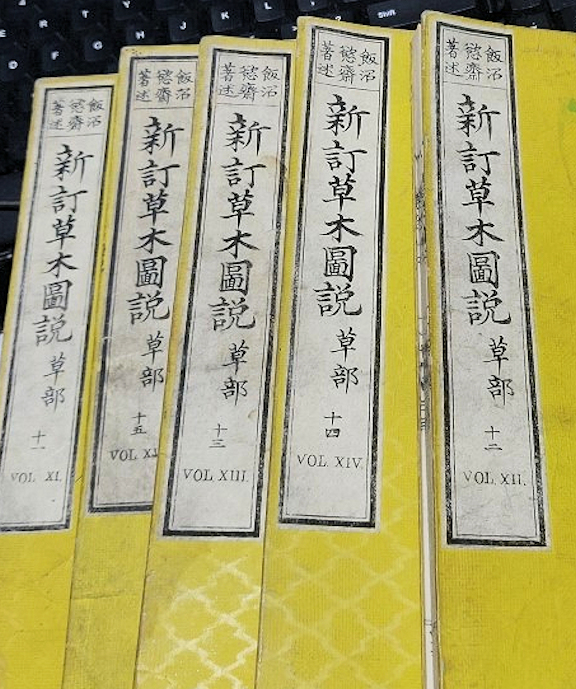 飯沼
慾齋
著述
新訂草木圖説
草部
十一
VOL XI.
飯沼
慾齋
著述
新訂草木圖説
草部
十五
VOL
飯沼
慾齋
著述
新訂草木圖説
草部
十三
VOL XIII.
飯沼
慾齋
著述
新訂草木圖説
草部
十四
VOL. XIV.
飯沼
慾齋
著述
新訂草木圖説
草部
十二
VOL. XII.